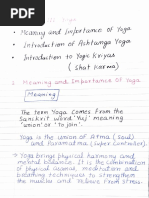 Yoga
• Meaning and Importance of Yoga
• Introduction of Ashtanga Yoga
• Introduction to Yogic Kriyas
(Shat Karma)
Meaning and Importance of Yoga
Meaning
The term Yoga comes from the
Sanskrit word 'Yuj' meaning
'union' or 'to join'.
Yoga is the union of Atma (Soul)
and Paramatma (Super Controller).
Yoga brings physical harmony and
mental balance. It is the combination
of physical
to strengthen
the muscles and relieve from stress.